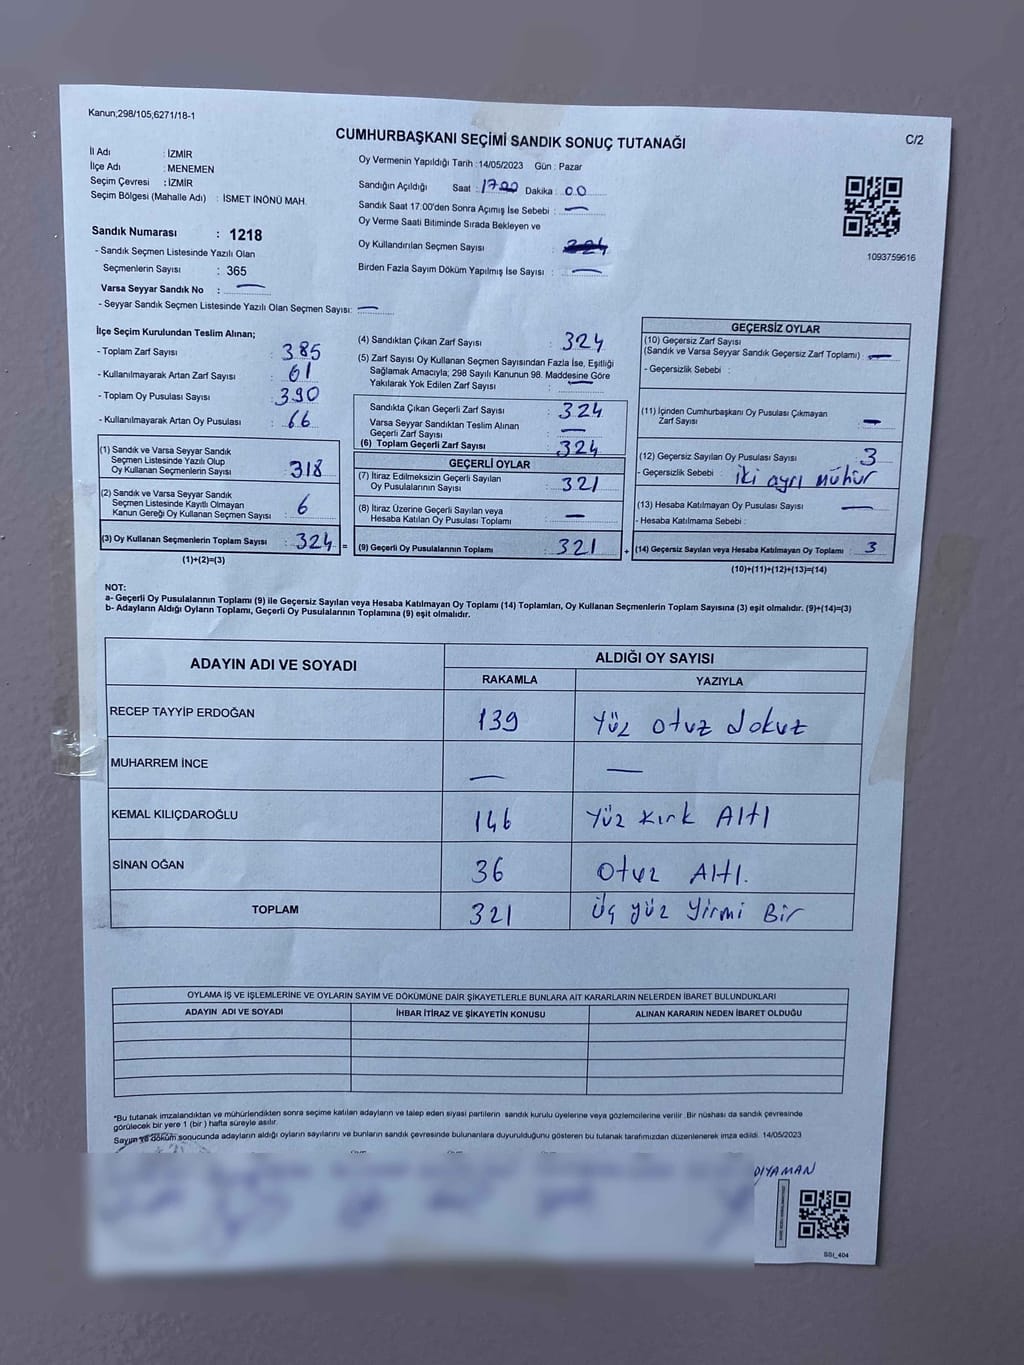 Kanun;298/105,6271/18-1
CUMHURBAŞKANI SEÇİMİ SANDIK SONUÇ TUTANAĞI
C/2
İl Adı : İZMİR
İlçe Adı : MENEMEN
Seçim Çevresi : İZMİR
Seçim Bölgesi (Mahalle Adı) : İSMET İNÖNÜ MAH.
Sandık Numarası : 1218
- Sandık Seçmen Listesinde Yazılı Olan
Seçmenlerin Sayısı : 365
Varsa Seyyar Sandık No : —
- Seyyar Sandık Seçmen Listesinde Yazılı Olan Seçmen Sayısı: —
Oy Vermenin Yapıldığı Tarih : 14/05/2023 Gün : Pazar
Sandığın Açıldığı Saat : 1700 Dakika : 00
Sandık Saat 17:00'den Sonra Açımış İse Sebebi : —
Oy Verme Saati Bitiminde Sırada Bekleyen ve
Oy Kullandırılan Seçmen Sayısı : 324
Birden Fazla Sayım Döküm Yapılmış İse Sayısı : —
1093759616
İlçe Seçim Kurulundan Teslim Alınan;
- Toplam Zarf Sayısı : 385
- Kullanılmayarak Artan Zarf Sayısı : 61
- Toplam Oy Pusulası Sayısı : 390
- Kullanılmayarak Artan Oy Pusulası : 66
(1) Sandık ve Varsa Seyyar Sandık
Seçmen Listesinde Yazılı Olup
Oy Kullanan Seçmenlerin Sayısı : 318
(2) Sandık ve Varsa Seyyar Sandık
Seçmen Listesinde Kayıtlı Olmayan
Kanun Gereği Oy Kullanan Seçmen Sayısı : 6
(3) Oy Kullanan Seçmenlerin Toplam Sayısı : 324 =
(1)+(2)=(3)
(4) Sandıktan Çıkan Zarf Sayısı : 324
(5) Zarf Sayısı Oy Kullanan Seçmen Sayısından Fazla İse, Eşitliği
Sağlamak Amacıyla; 298 Sayılı Kanunun 98. Maddesine Göre
Yakılarak Yok Edilen Zarf Sayısı : —
Sandıkta Çıkan Geçerli Zarf Sayısı : 324
Varsa Seyyar Sandıktan Teslim Alınan
Geçerli Zarf Sayısı : —
(6) Toplam Geçerli Zarf Sayısı : 324
GEÇERLİ OYLAR
(7) İtiraz Edilmeksizin Geçerli Sayılan
Oy Pusulalarının Sayısı : 321
(8) İtiraz Üzerine Geçerli Sayılan veya
Hesaba Katılan Oy Pusulası Toplamı : —
(9) Geçerli Oy Pusulalarının Toplamı : 321 +
GEÇERSİZ OYLAR
(10) Geçersiz Zarf Sayısı
(Sandık ve Varsa Seyyar Sandık Geçersiz Zarf Toplamı) : —
- Geçersizlik Sebebi :
(11) İçinden Cumhurbaşkanı Oy Pusulası Çıkmayan
Zarf Sayısı : —
(12) Geçersiz Sayılan Oy Pusulası Sayısı : 3
- Geçersizlik Sebebi : iki ayrı mühür
(13) Hesaba Katılmayan Oy Pusulası Sayısı : —
- Hesaba Katılmama Sebebi :
(14) Geçersiz Sayılan veya Hesaba Katılmayan Oy Toplamı : 3
(10)+(11)+(12)+(13)=(14)
NOT:
a- Geçerli Oy Pusulalarının Toplamı (9) ile Geçersiz Sayılan veya Hesaba Katılmayan Oy Toplamı (14) Toplamları, Oy Kullanan Seçmenlerin Toplam Sayısına (3) eşit olmalıdır. (9)+(14)=(3)
b- Adayların Aldığı Oyların Toplamı, Geçerli Oy Pusulalarının Toplamına (9) eşit olmalıdır.
ADAYIN ADI VE SOYADI ALDIĞI OY SAYISI
RAKAMLA YAZIYLA
RECEP TAYYİP ERDOĞAN 139 Yüz otuz dokuz
MUHARREM İNCE — —
KEMAL KILIÇDAROĞLU 146 Yüz kırk Altı
SİNAN OĞAN 36 Otuz Altı.
TOPLAM 321 Üç yüz Yirmi Bir
OYLAMA İŞ VE İŞLEMLERİNE VE OYLARIN SAYIM VE DÖKÜMÜNE DAİR ŞİKAYETLERLE BUNLARA AİT KARARLARIN NELERDEN İBARET BULUNDUKLARI
ADAYIN ADI VE SOYADI İHBAR İTİRAZ VE ŞİKAYETİN KONUSU ALINAN KARARIN NEDEN İBARET OLDUĞU
*Bu tutanak imzalandıktan ve mühürlendikten sonra seçime katılan adayların ve talep eden siyasi partilerin sandık kurulu üyelerine veya gözlemcilerine verilir. Bir nüshası da sandık çevresinde
görülecek bir yere 1 (bir) hafta süreyle asılır.
Sayım ve döküm sonucunda adayların aldığı oyların sayılarını ve bunların sandık çevresinde bulunanlara duyurulduğunu gösteren bu tutanak tarafımızdan düzenlenerek imza edildi. 14/05/2023
DIYAMAN
SSI_404